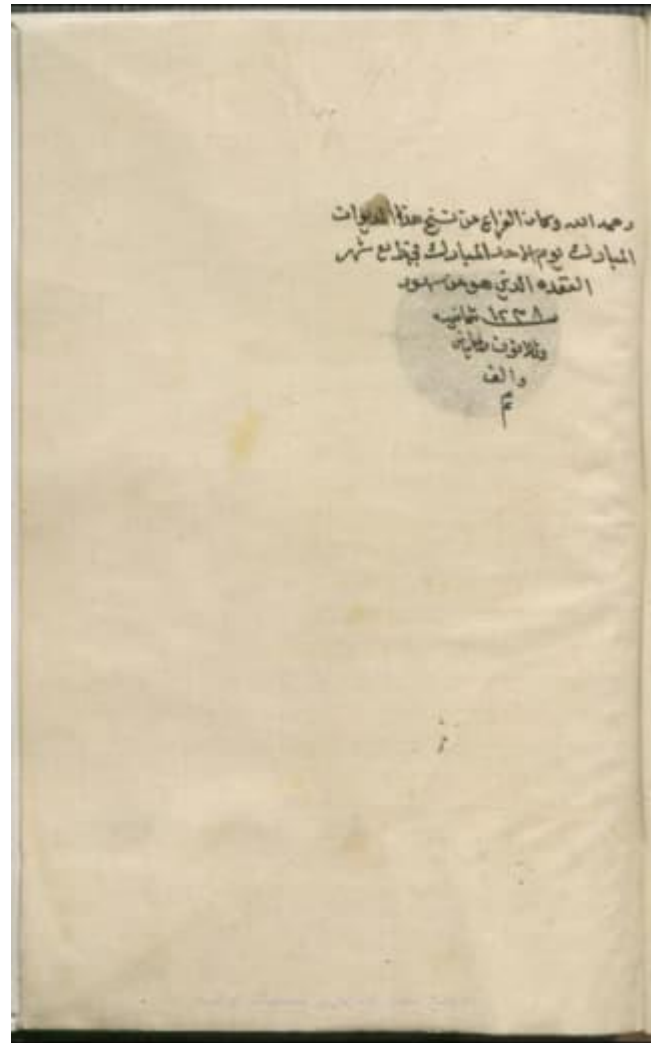 رحمه الله وكان الفراغ من نسخ هذا الديوان
المبارك يوم الاحد المبارك في شهر
القعده الذي هو من شهور
سنة ١٢٣٨ ثمانيه
وثلاثون ومايتين
والف
تم